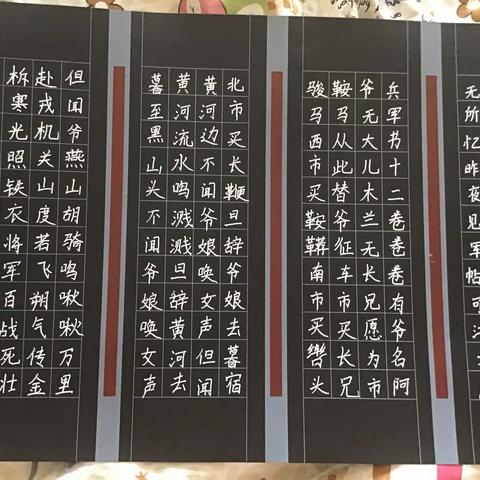 无所忆昨夜见军帖可
兵军书十二卷卷卷有爷名阿
爷无大儿木兰无长兄愿为市
鞍马从此替爷征车市买长兄
骏马西市买鞍鞯南市买辔头
北市买长鞭旦辞爷娘去暮宿
黄河边不闻爷娘唤女声但闻
黄河流水鸣溅溅旦辞黄河去
暮至黑山头不闻爷娘唤女声
但闻爷燕山胡骑鸣啾啾万里
赴戎机关山度若飞朔气传金
柝寒光照铁衣将军百战死壮